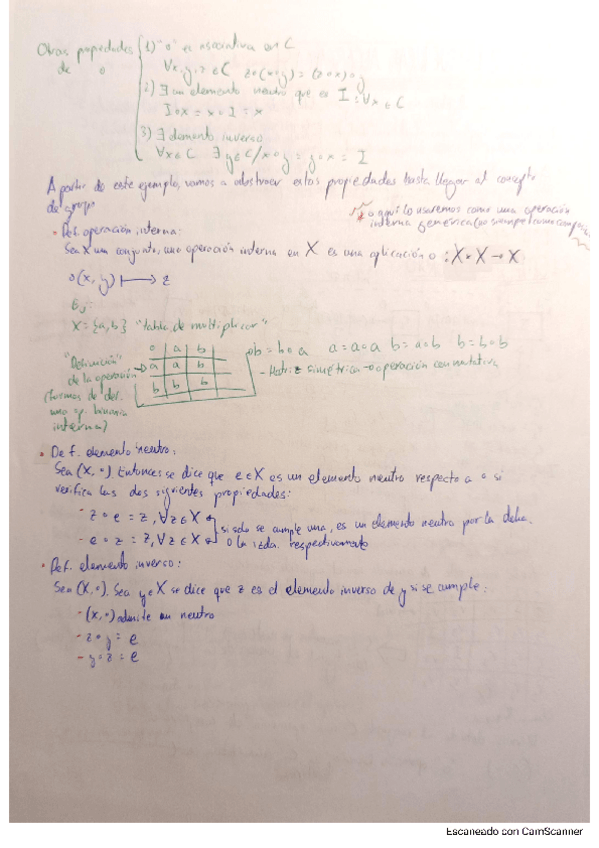 Otras propiedades de ∘ { 1) "∘" es asociativa en C
∀x,y,z ∈ C z∘(x∘y) = (z∘x)∘y
2) ∃ un elemento neutro que es I : ∀x ∈ C
I∘x = x∘I = x
3) ∃ elemento inverso
∀x∈C ∃ y∈C / x∘y = y∘x = I
A partir de este ejemplo, vamos a abstraer estas propiedades hasta llegar al concepto
de grupo
∘ aquí lo usaremos como una operación
interna genérica (no siempre como comp
• Def. operación interna:
Sea X un conjunto, una operación interna en X es una aplicación ∘ : X × X → X
∘(x, y) ⟼ z
Ej:
X = {a,b} "tabla de multiplicar"
"Definición"
de la operación
(formas de def.
una op. binaria
interna)
∘ a b
a a b
b b b
a∘b = b∘a a = a∘a b = a∘b b = b∘b
- Matriz simétrica → operación conmutativa
• Def. elemento neutro:
Sea (X, ∘). Entonces se dice que e∈X es un elemento neutro respecto a ∘ si
verifica las dos siguientes propiedades:
- z ∘ e = z, ∀z∈X
- e ∘ z = z, ∀z∈X
si solo se cumple una, es un elemento neutro por la dcha.
o la izda. respectivamente
• Def. elemento inverso:
Sea (X, ∘). Sea y∈X se dice que z es el elemento inverso de y si se cumple:
- (X, ∘) admite un neutro
- z ∘ y = e
- y ∘ z = e
Escaneado con CamScanner